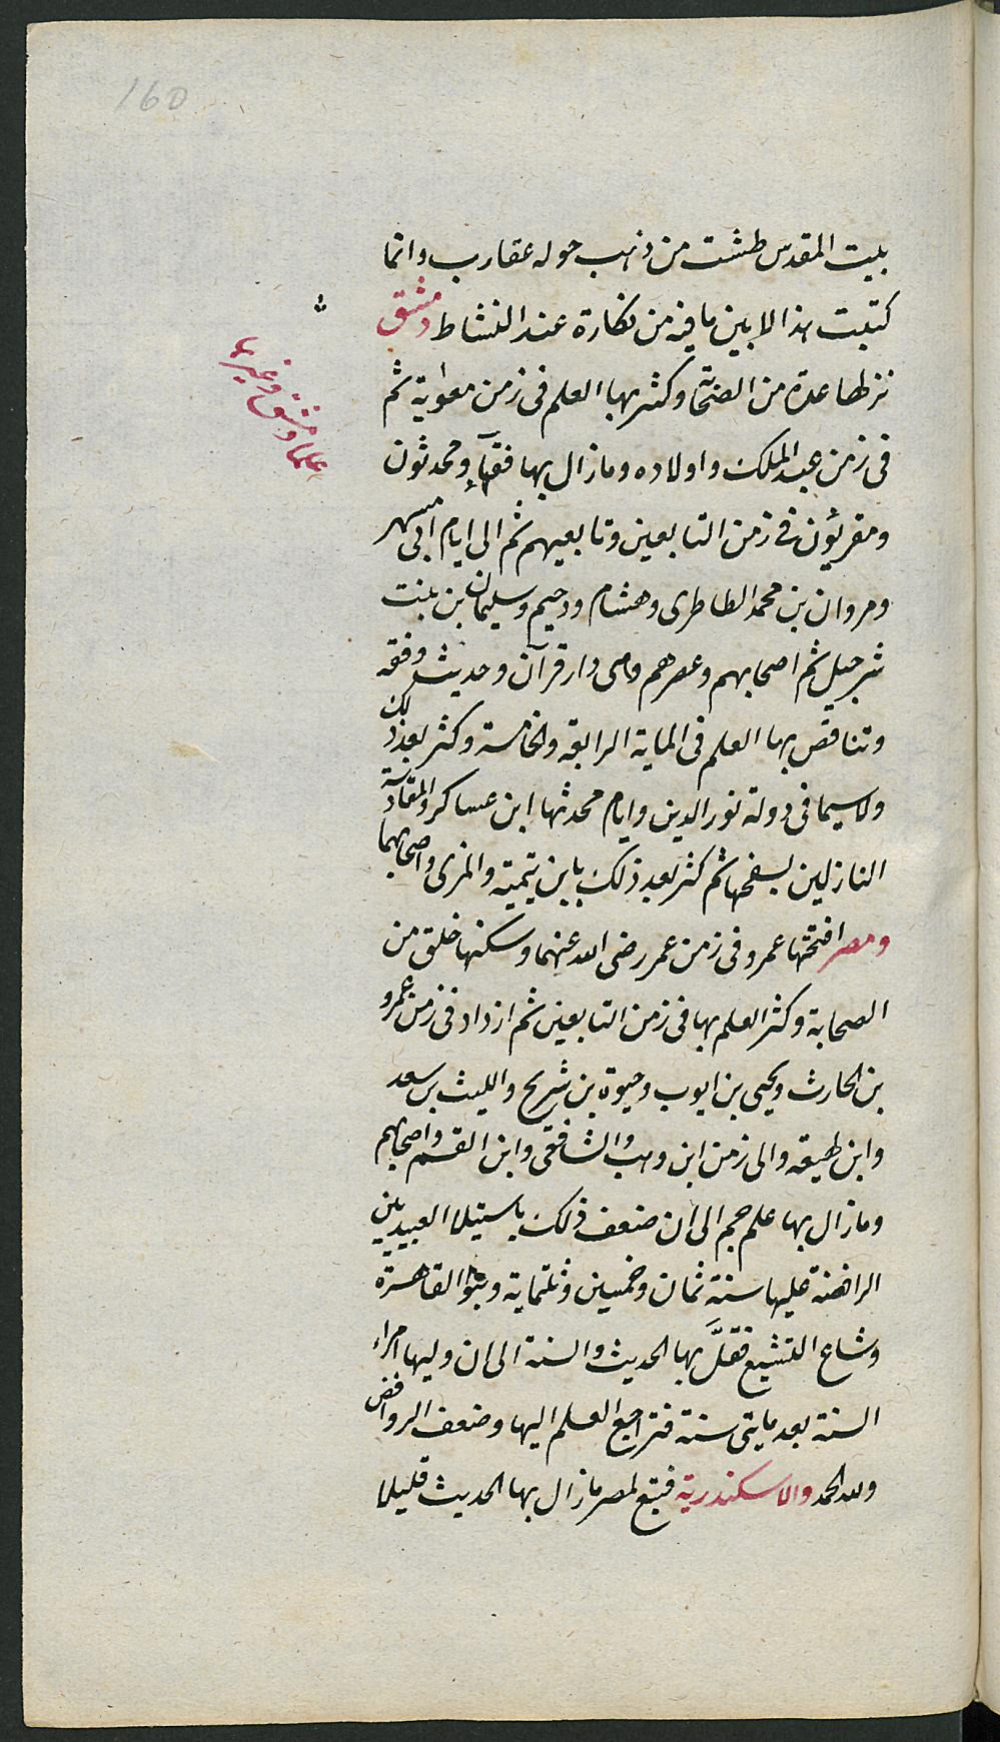 160
بيت المقدس طشت من ذهب حوله عقارب وانما
كتبت هذا لابين ما فيه من نكارة عند النشاط دمشق
نزلها عدة من الصحابة وكثر بها العلم فى زمن معوية ثم
فى زمن عبد الملك واولاده ومازال بها فقهآء ومحدثون
ومقريؤن فى زمن التابعين وتابعيهم ثم الى ايام ابى مسهر
ومروان بن محمد الطاطرى وهشام ودحيم وسليمان بن بنت
شرحبيل ثم اصحابهم وعصرهم وهى دار قرآن وحديث وفقه
وتناقص بها العلم فى الماية الرابعة والخامسة وكثر بعد ذلك
ولاسيما فى دولة نور الدين وايام محدثها ابن عساكر والمقادسة
النازلين بسفحها ثم كثر بعد ذلك بابن تيمية والمزى واصحابهما
ومصر افتحتها عمرو فى زمن عمر رضى الله عنهما وسكنها خلق من
الصحابة وكثر العلم بها فى زمن التابعين ثم ازداد فى زمن عمرو
بن الحارث ويحيى بن ايوب وحيوة بن شريح والليث بن سعد
وابن لهيعة والى زمن ابن وهب والشافعى وابن القسم واصحابهم
ومازال بها علم جم الى ان ضعف ذلك باستيلا العبيديين
الرافضة عليها سنة ثمان وخمسين وثلثماية وبنوا القاهرة
وشاع التشيع فقلَّ بها الحديث والسنة الى ان وليها امراء
السنة بعد مايتى سنة فتراجع العلم اليها وضعف الروافض
ولله الحمد والاسكندرية فتبع لمصر مازال بها الحديث قليلا
علما دمشق وغيرها